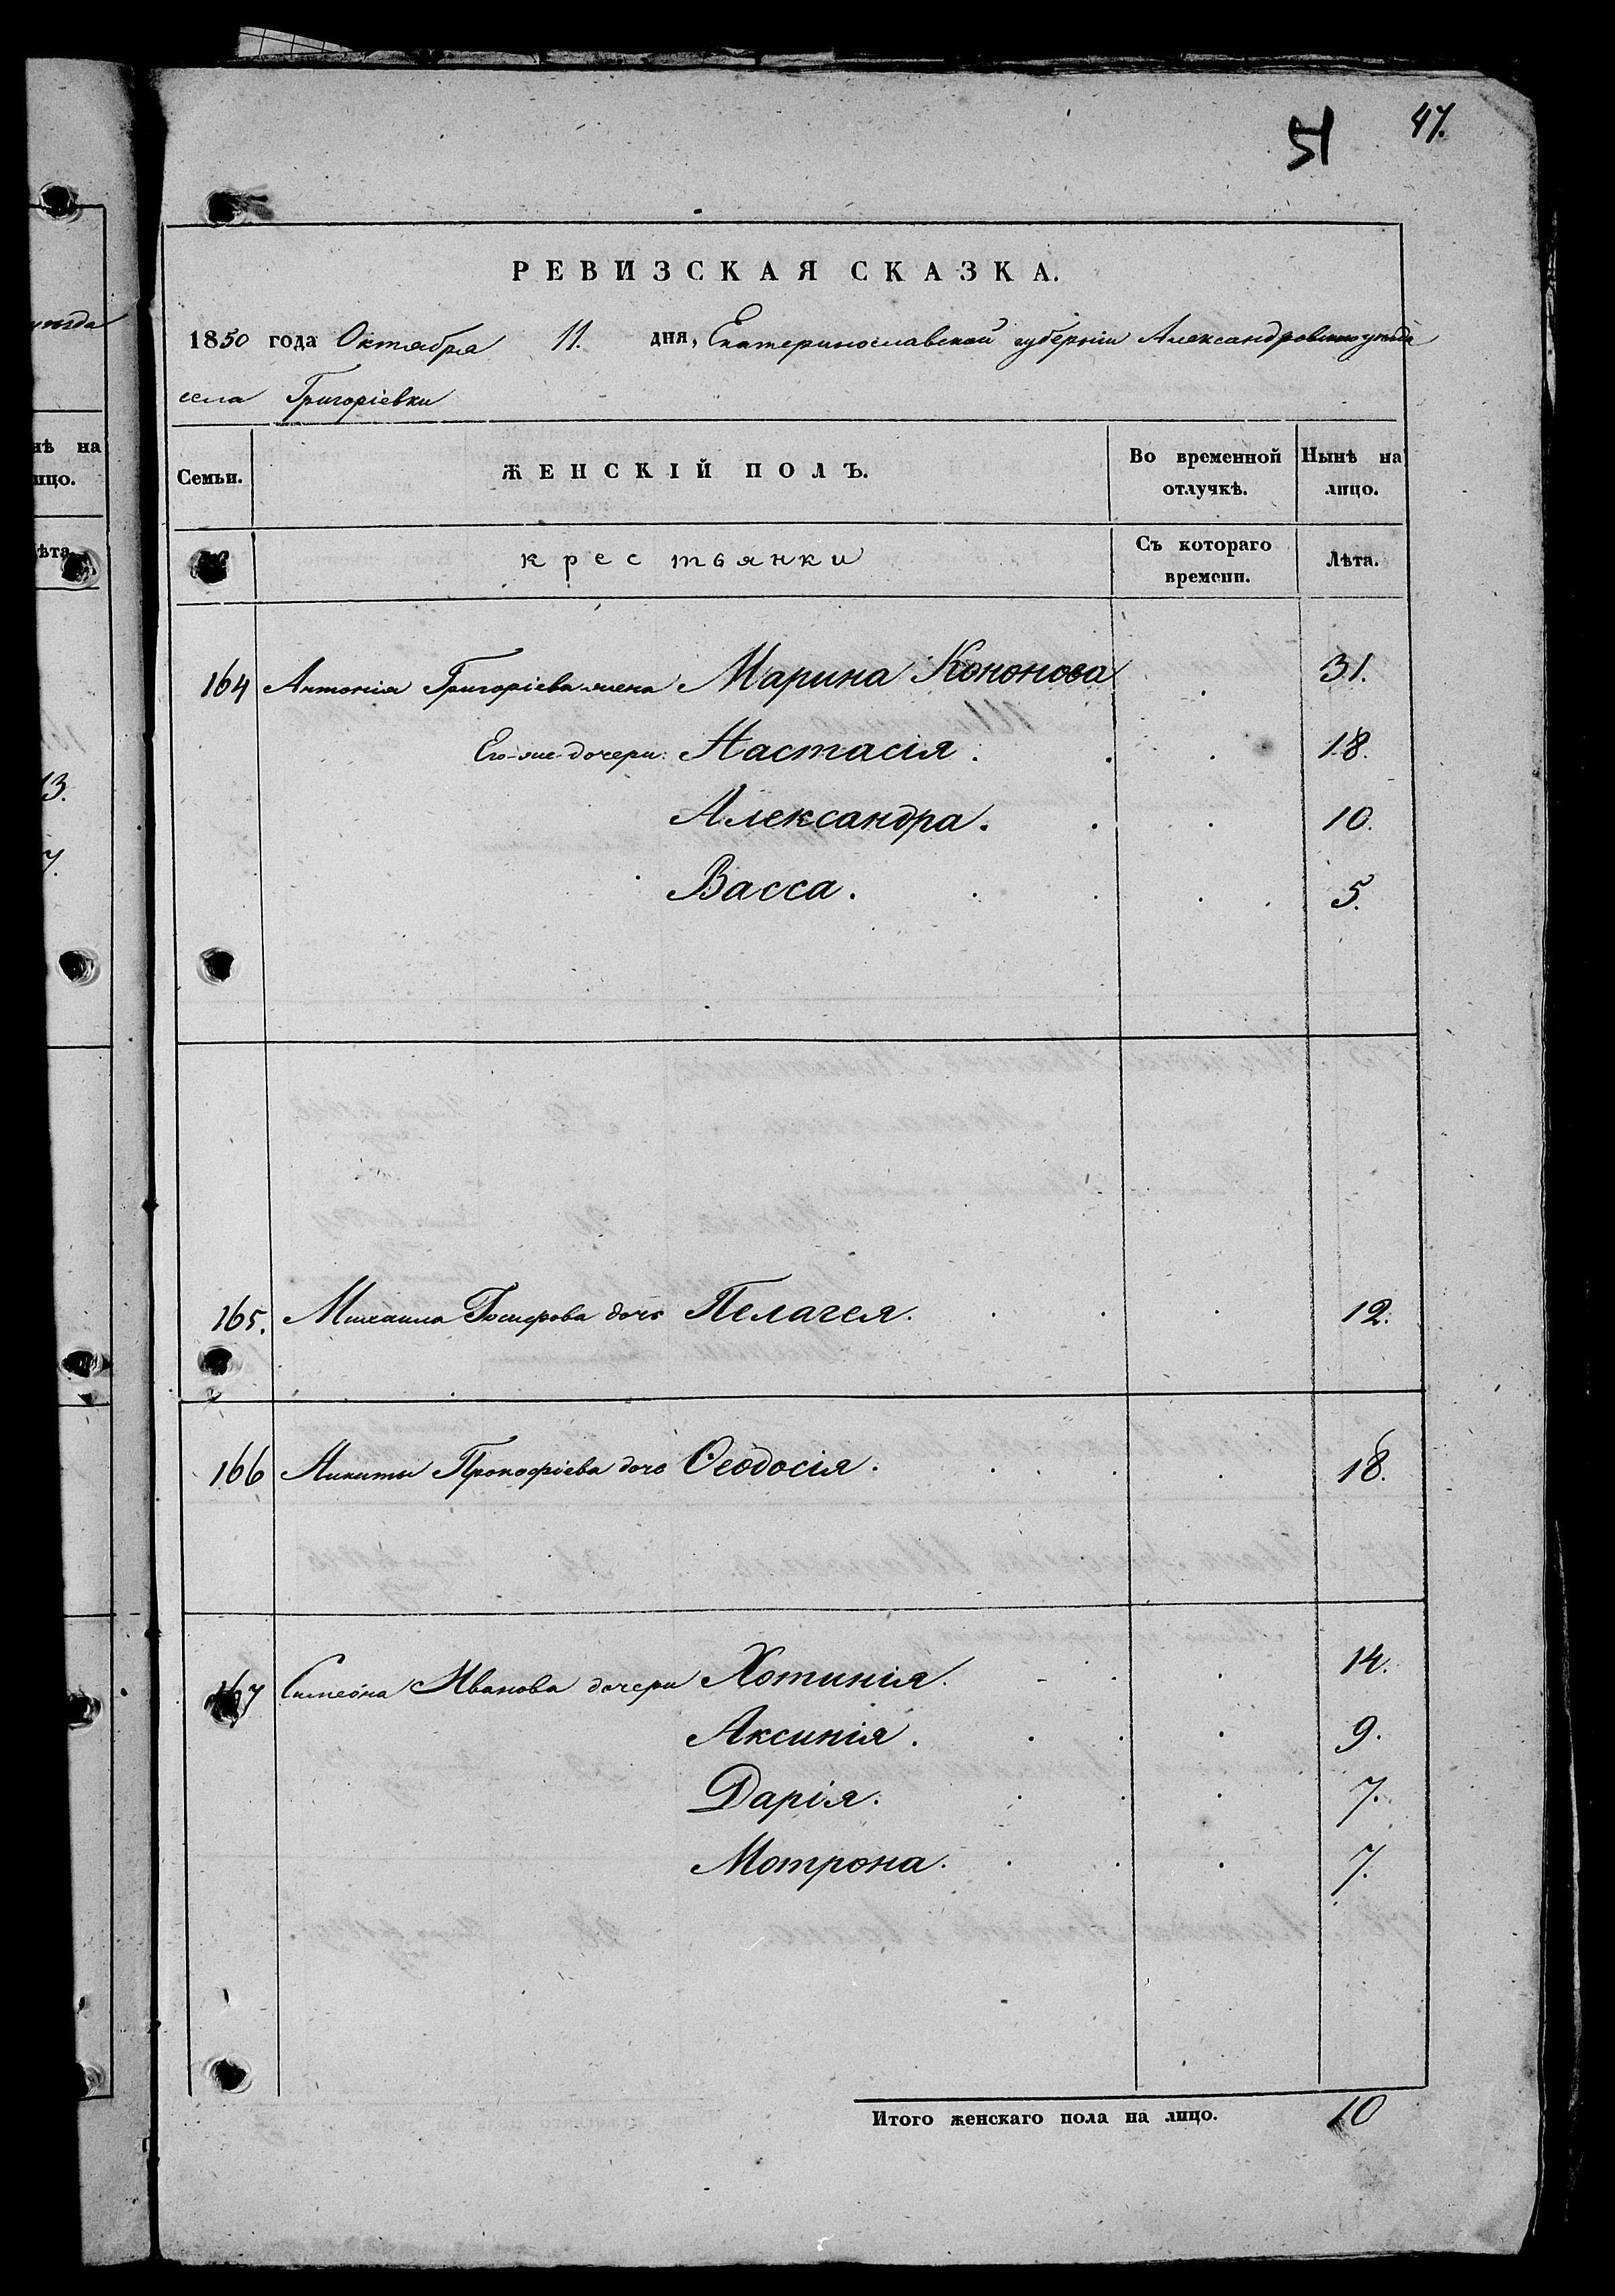 51 47.
РЕВИЗСКАЯ СКАЗКА.
1850 года Октября 11. дня, Екатеринославской губерніи Александровскаго уѣзда
села Григоріевки
Семьи. ЖЕНСКІЙ ПОЛЪ. Во временной отлучкѣ. Нынѣ на лицо.
крестьянки Съ котораго времени. Лѣта.
164 Антонія Григоріева жена Марина Кононова 31.
Его-же дочери: Настасія. 18.
Александра. 10.
Васса. 5.
165. Михаила дочь Пелагея. 12.
166 Никиты Прокофіева дочь Ѳеодосія. 18.
167 Симеона Иванова дочери Хотинія. 14.
Аксинія. 9.
Дарія. 7.
Мотрона. 7.
Итого женскаго пола на лицо. 10
уѣзда
нѣ на
ицо.
ѣта.
13.
7.